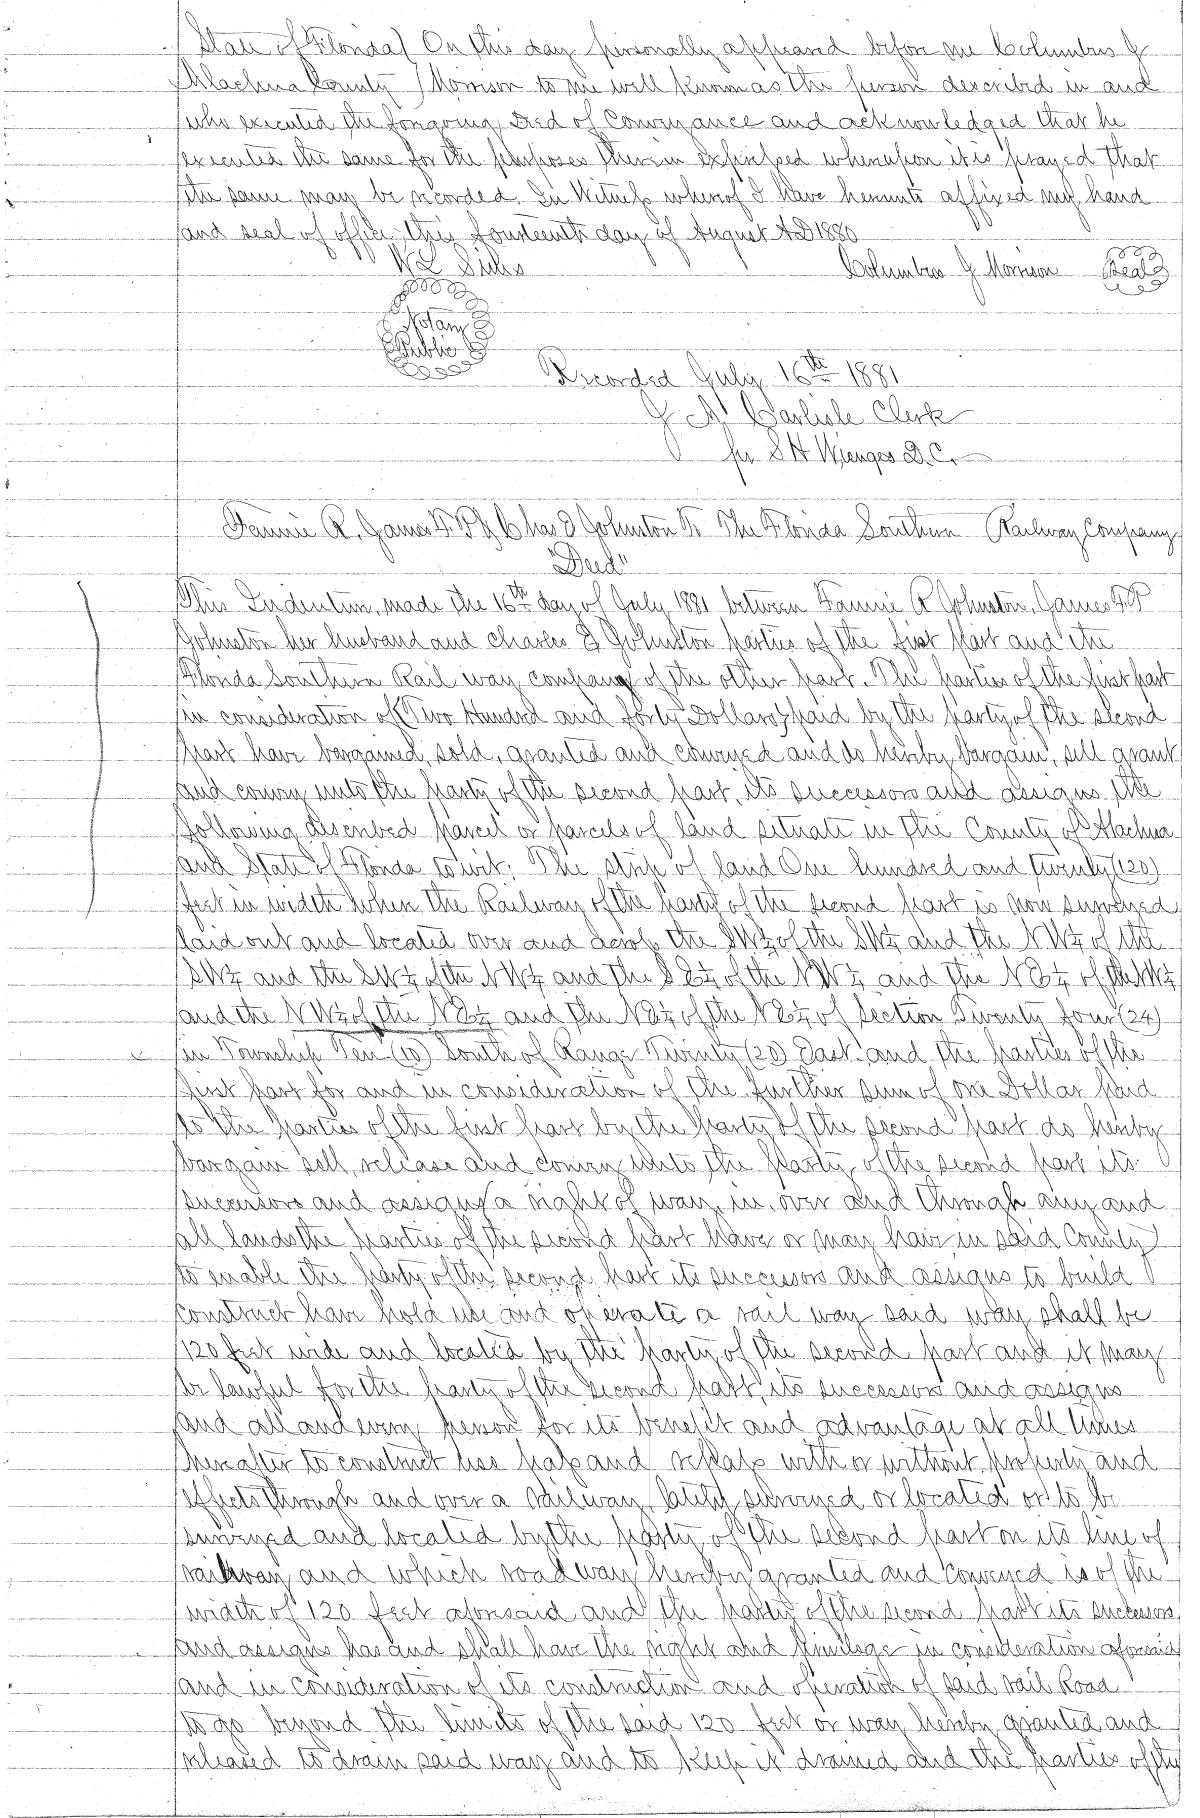 State of Florida } On this day personally appeared before me Columbus J
Alachua County } Morrison to me well known as the person described in and
who executed the foregoing Deed of Conveyance and acknowledged that he
executed the same for the purposes therein expressed whereupon it is prayed that
the same may be recorded. In Witness whereof I have hereunto affixed my hand
and seal of office this fourteenth day of August AD 1880
W L Columbus J Morrison Seal
Notary
Public
Recorded July 16th 1881
J A Carlisle Clerk
pr S H Wienges D.C.
Fannie R. James F P & Chas E Johnston To The Florida Southern Railway Company
"Deed"
This Indenture, made the 16th day of July 1881 between Fannie R Johnston, James F.P
Johnston her husband and Charles E Johnston parties of the first part and the
Florida Southern Rail way company of the other part. The parties of the first part
in consideration of (Two Hundred and forty Dollars) paid by the party of the second
part have bargained, sold, granted and conveyed and do hereby bargain, sell grant
and convey unto the party of the second part, its successors and assigns the
following described parcel or parcels of land situate in the County of Alachua
and State of Florida to wit: The strip of land One hundred and twenty (120)
feet in width when the Railway of the party of the second part is now surveyed
laid out and located over and across the SW¼ of the SW¼ and the NW¼ of the
SW¼ and the SW¼ of the NW¼ and the SE¼ of the NW¼ and the NE¼ of the NW¼
and the NW¼ of the NE¼ and the NE¼ of the NE¼ of Section Twenty four (24)
in Township Ten (10) South of Range Twenty (20) East. and the parties of the
first part for and in consideration of the further sum of one Dollar paid
to the parties of the first part by the party of the second part do hereby
bargain sell, release and convey unto the party of the second part its
successors and assigns (a right of way, in, over and through any and
all lands the parties of the second part have or may have in said County)
to enable the party of the second part its successors and assigns to build
construct have hold use and operate a rail way said way shall be
120 feet wide and located by the party of the second part and it may
be lawful for the party of the second part, its successors and assigns
and all and every person for its benefit and advantage at all times
hereafter to construct use pass and repass with or without property and
effects through and over a railway, lately surveyed or located or to be
surveyed and located by the party of the second part on its line of
railway and which road way hereby granted and conveyed is of the
width of 120 feet aforesaid and the party of the second part its successors
and assigns has and shall have the right and privilege in consideration aforesaid
and in consideration of its construction and operation of said rail Road
to go beyond the limits of the said 120 feet or way hereby granted and
released to drain said way and to keep it drained and the parties of the